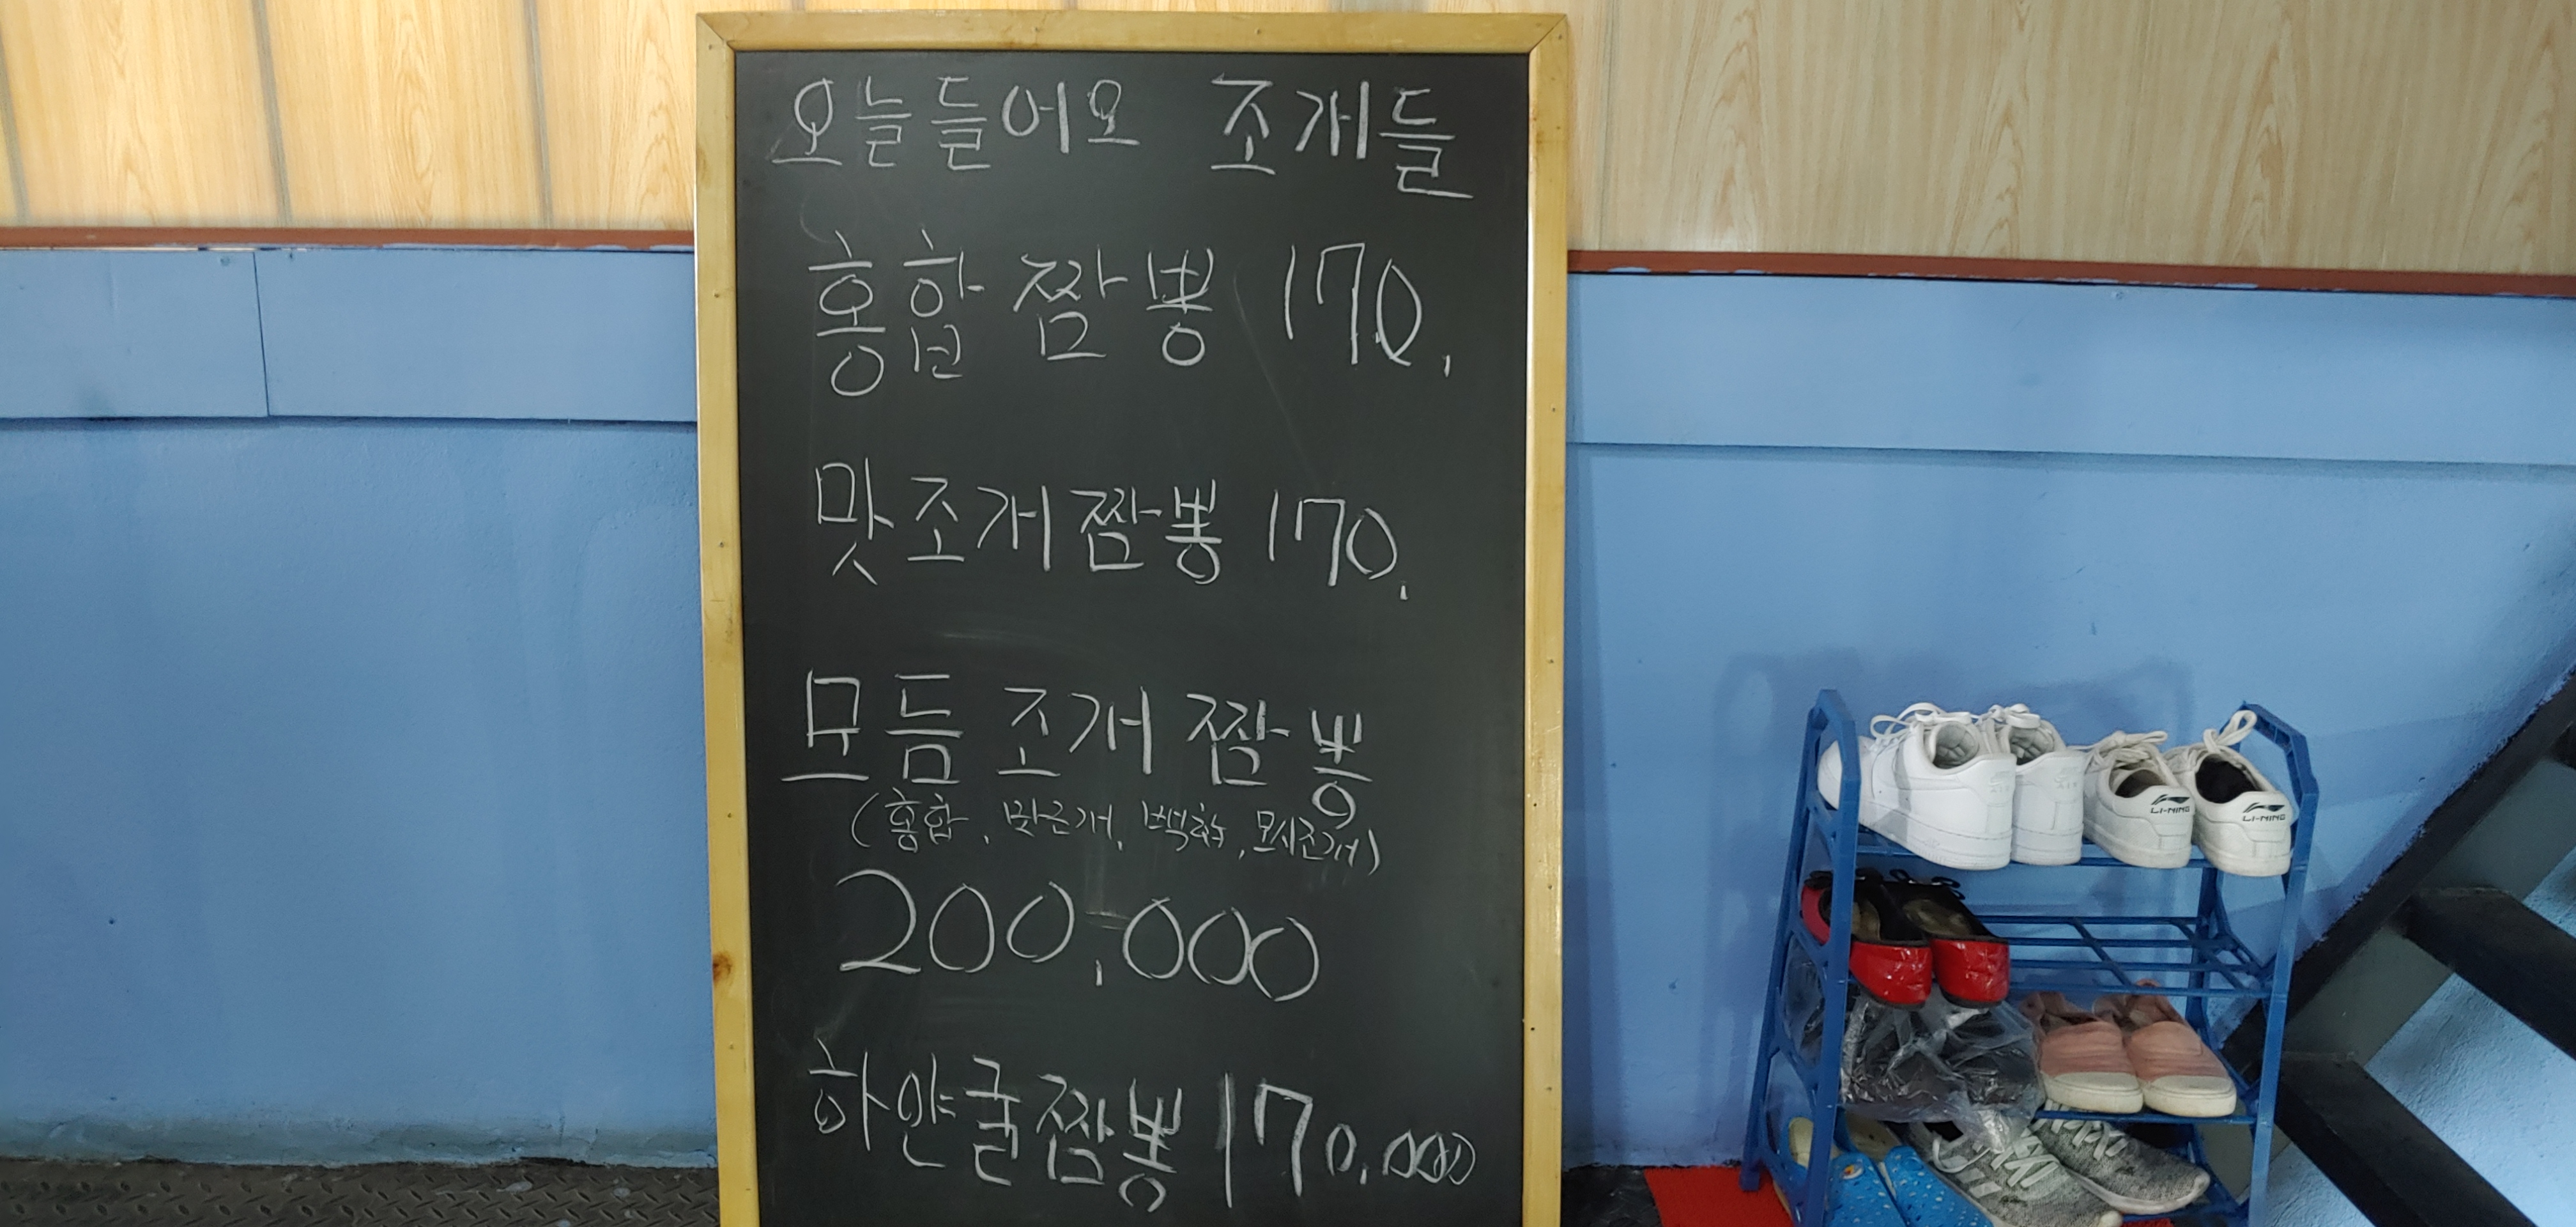 오늘들어오 조개들
홍합 짬뽕 170,
맛조개짬뽕 170,
모듬 조개 짬뽕
(홍합, 맛조개, 백합, 모시조개)
200,000
하얀굴짬뽕 170,000
LI-NING
LI-NING